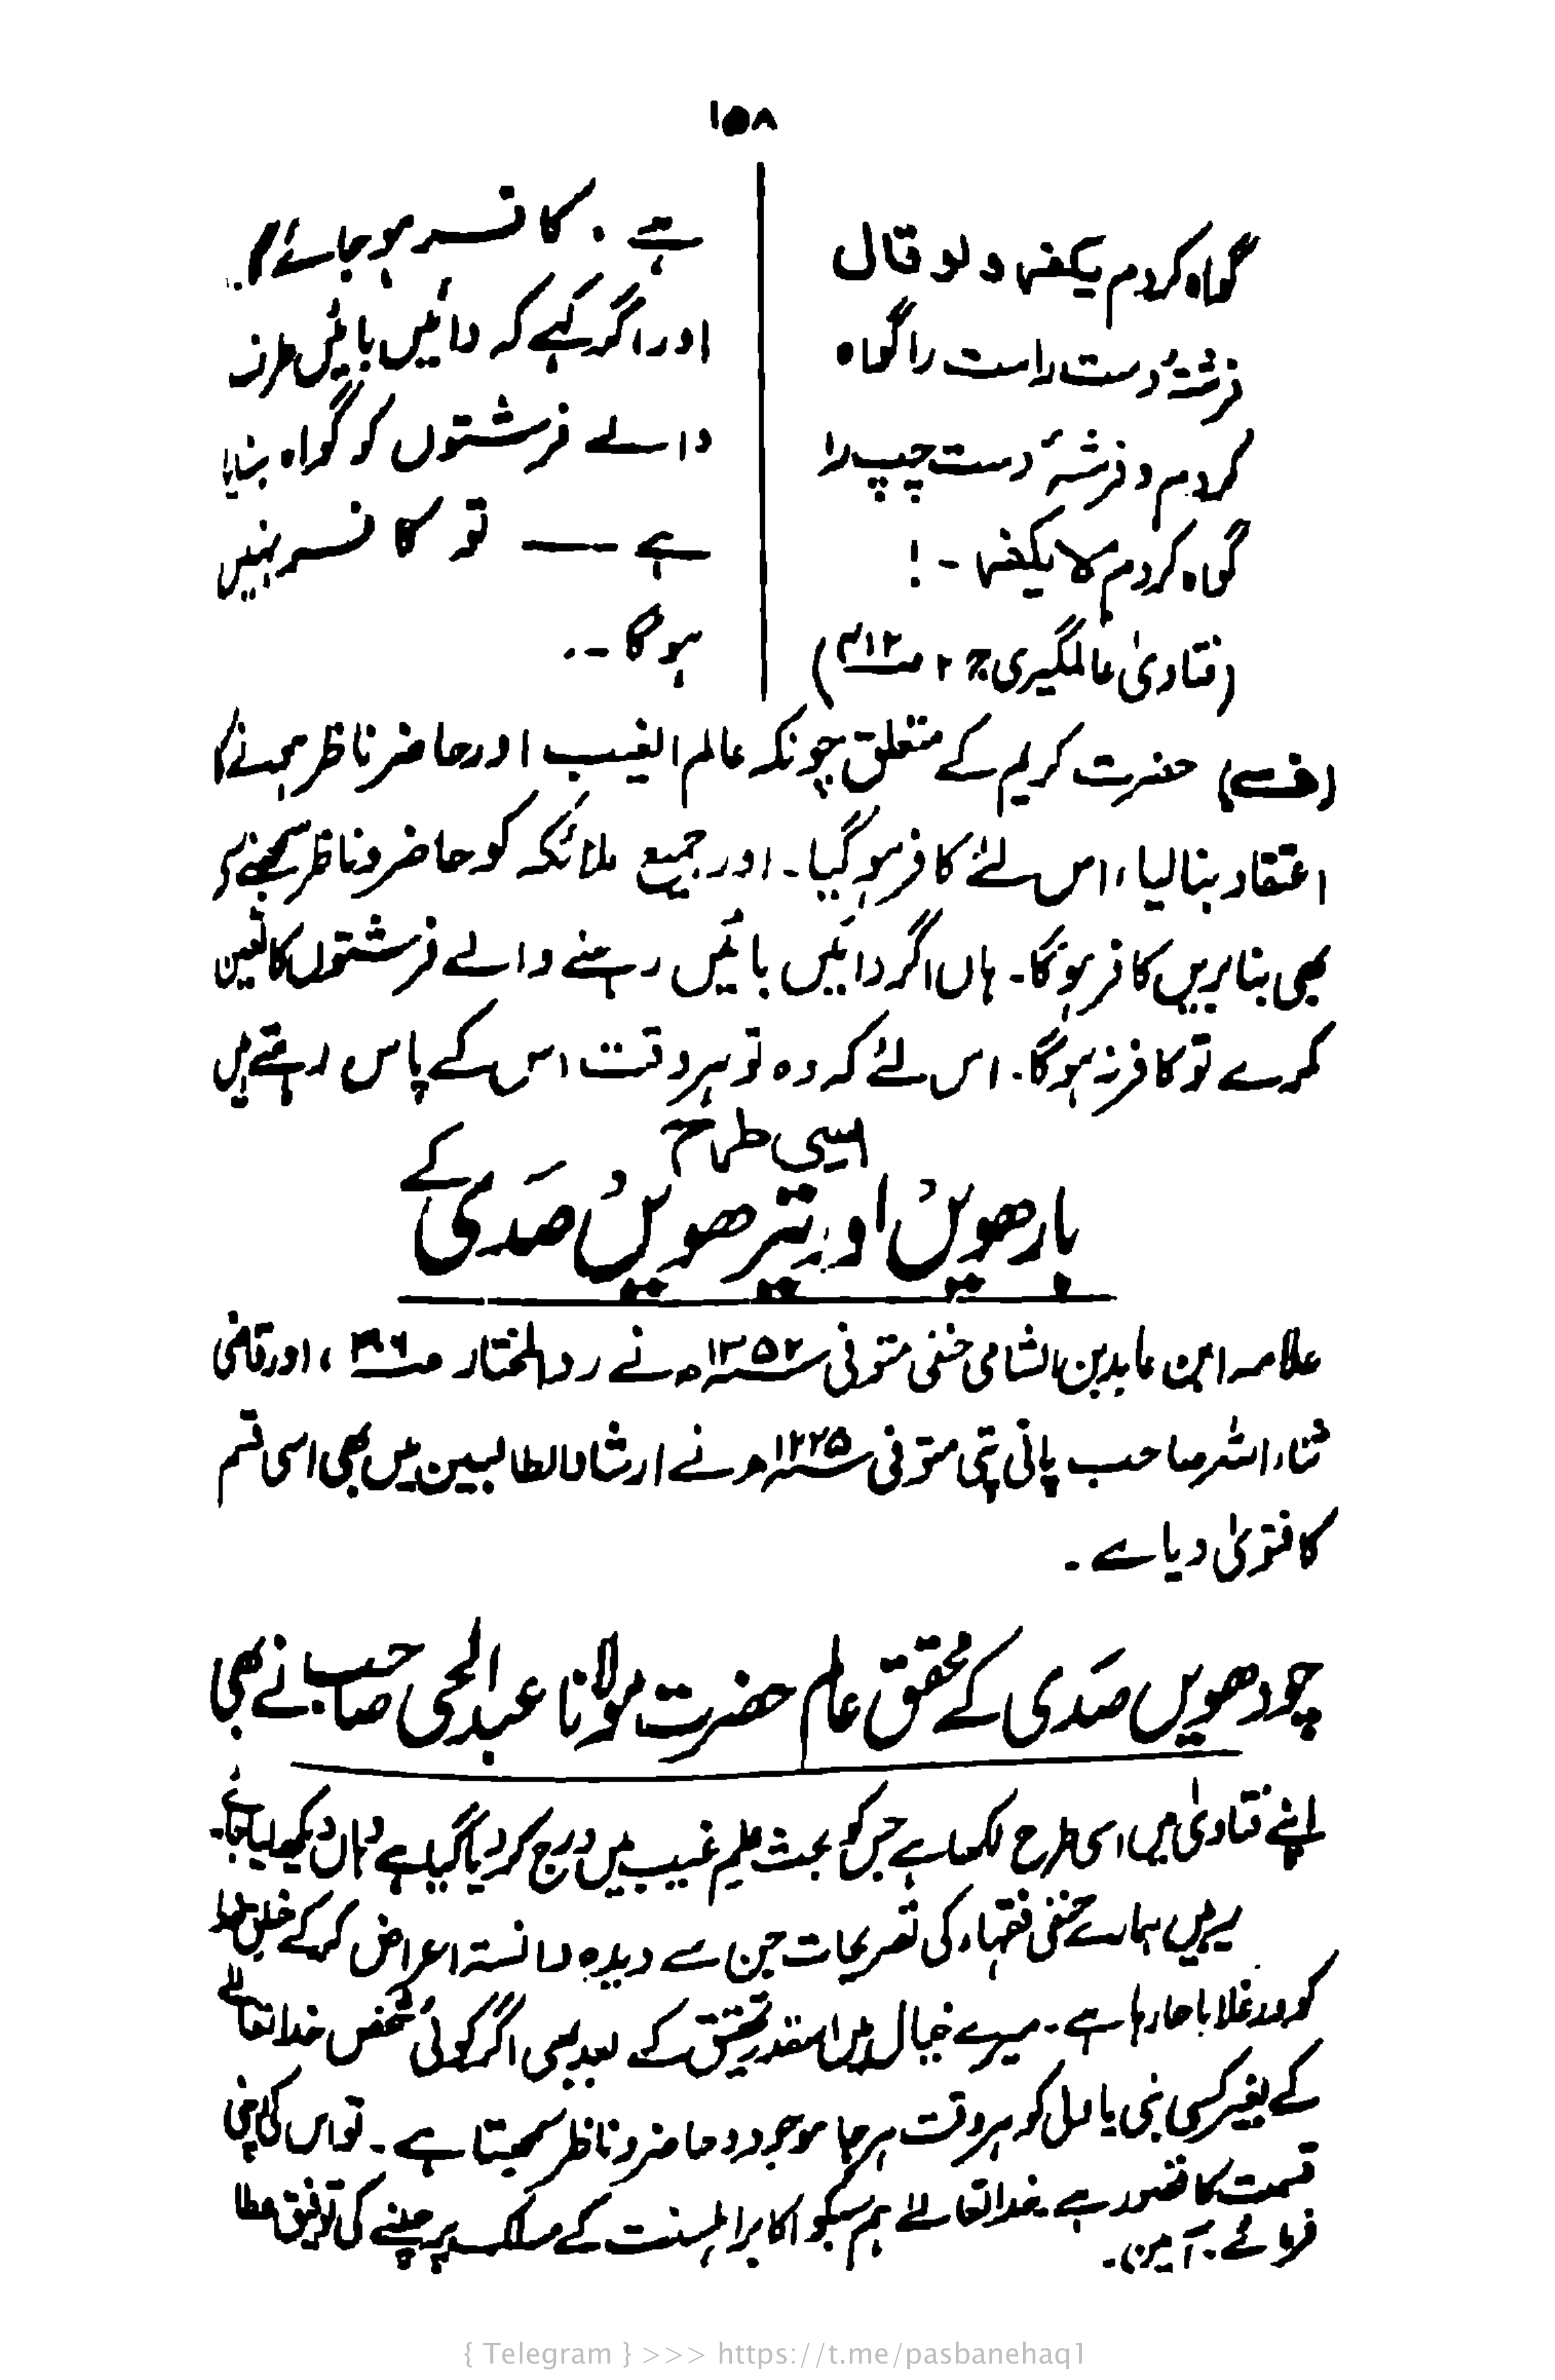 ۱۵۸
گواہ کردم یکفر و لو قال
فرشتۂ دست راست را گواہ
کردم و فرشتۂ دست چپ را
گواہ کردم لا یکفر - !
(فتاویٰ عالمگیری ج ۲ ص۴۱۲)
ہے . کافر ہو جائے گا.
اور اگر کہے کہ دائیں بائیں طرف
والے فرشتوں کو گواہ بنایا
ہے —— تو کافر نہیں
ہو گا -.
(ف) حضرت کریم کے متعلق چونکہ عالم الغیب اور حاضر ناظر ہونے کا
اعتقاد بنا لیا، اس لئے کافر ہو گیا - اور جمیع ملائکہ کو حاضر و ناظر سمجھنے پر
بھی بنا بریں کافر ہو گا - ہاں اگر دائیں بائیں رہنے والے فرشتوں کا تعین
کرے تو کافر نہ ہو گا. اس لئے کہ وہ تو ہر وقت اس کے پاس رہتے ہیں
اسی طرح
بارھویں اور تیرھویں صدی کے
علامہ ابن عابدین الشامی حنفی متوفی ۱۲۵۲ھ نے رد المختار ص۳۰۶، اور قاضی
ثناء اللہ صاحب پانی پتی متوفی ۱۲۲۵ھ نے ارشاد الطالبین میں بھی اسی قسم
کا فتویٰ دیا ہے -
چودھویں صدی کے محقق عالم حضرت مولانا عبد الحی صاحب نے بھی
اپنے فتاویٰ میں اسی طرح لکھا ہے جس کو بحث علم غیب میں درج کر دیا گیا ہے وہاں دیکھ لیا جائے -
یہ ہیں ہمارے حنفی فقہاء کی تصریحات جن سے دیدہ دانستہ اعراض کر کے خلق خدا
کو ورغلایا جا رہا ہے - میرے خیال میں اسقدر تحقیق کے بعد بھی اگر کوئی شخص خدا تعالےٰ
کے بغیر کسی نبی یا ولی کو ہر وقت ہر جا موجود و حاضر و ناظر سمجھتا ہے - تو اس کی اپنی
قسمت کا قصور ہے خدا تعالےٰ ہم سبکو اکابر اہلسنت کے مسلک پر چلنے کی توفیق عطا
فرمائے - آمین -
{ Telegram } >>> https://t.me/pasbanehaq1